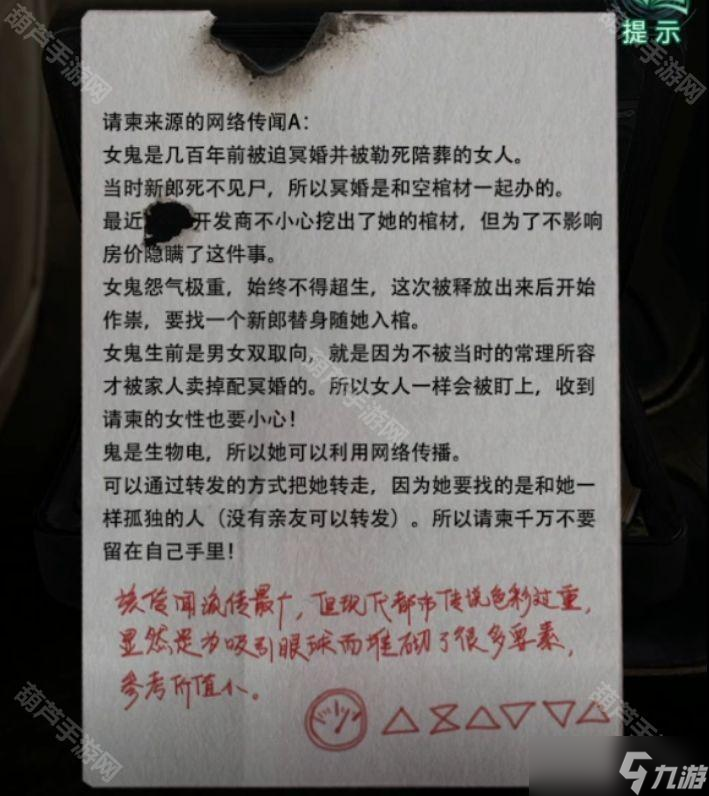 葫芦手游网
葫芦手游网
提示
请柬来源的网络传闻A：
女鬼是几百年前被追冥婚并被勒死陪葬的女人。
当时新郎死不见尸，所以冥婚是和空棺材一起办的。
最近 开发商不小心挖出了她的棺材，但为了不影响
房价隐瞒了这件事。
女鬼怨气极重，始终不得超生，这次被释放出来后开始
作祟，要找一个新郎替身随她入棺。
女鬼生前是男女双取向，就是因为不被当时的常理所容
才被家人卖掉配冥婚的。所以女人一样会被盯上，收到
请柬的女性也要小心！
葫芦手游网
鬼是生物电，所以她可以利用网络传播。
可以通过转发的方式把她转走，因为她要找的是和她一
样孤独的人（没有亲友可以转发）。所以请柬千万不要
留在自己手里！
该传闻流传最广，但现代都市传说色彩过重，
显然是为吸引眼球而堆砌了很多要素，
参考价值小。
葫芦手游网
葫芦手游网
九游